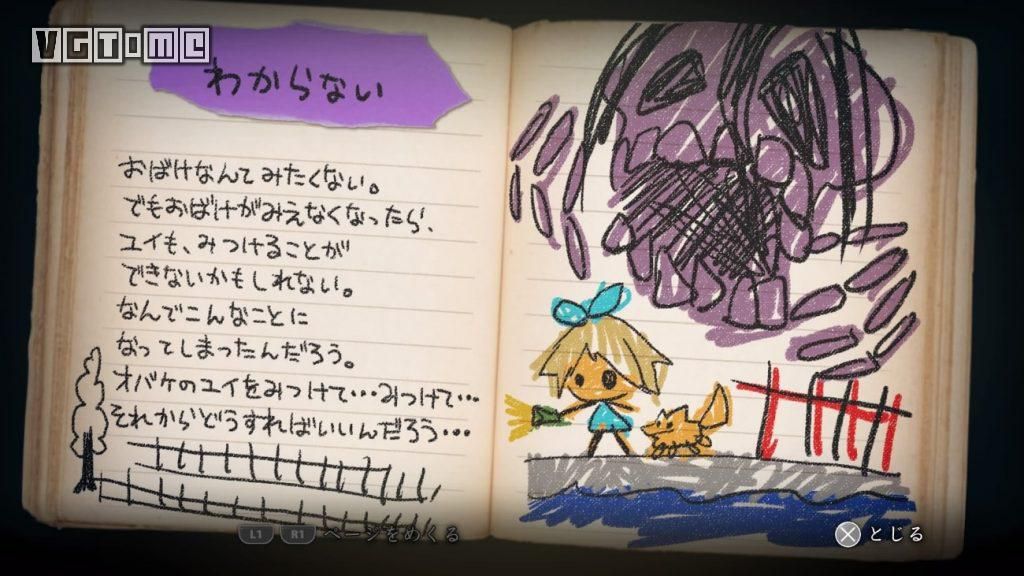 VGTIME
わからない
おばけなんてみたくない。
でもおばけがみえなくなったら、
ユイも、みつけることが
できないかもしれない。
なんでこんなことに
なってしまったんだろう。
オバケのユイをみつけて…みつけて…
それからどうすればいいんだろう…
L1 R1 ページをめくる
とじる